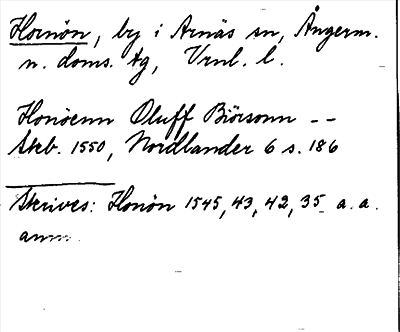 Hornön, by i Arnäs sn, Ångerm.
n. doms. tg, Vrnl. l.
Honöenn Oluff Biörsonn --
Skb. 1550, Nordlander 6 s. 186
Skrives: Honön 1545, 43, 42, 35 a.a.
anm.